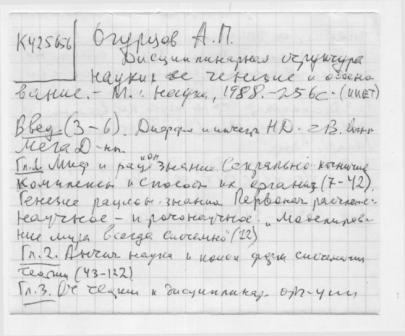 К425656
Огурцов А.П.
Дисциплинарная структура
науки: ее генезис и обосно
вание. - М.: Наука, 1988. - 256 с. (ИИЕТ)
Введ (3-6). Дифф и интегр НД.
Мега
Гл.1. Миф и рац знание Сакрально
комплексы и способы их организ (7-42).
Генезис рацион. знания Первонач
научное - и рочонаучное. "Моделирова
ние мира всегда системно" (22)
Гл.2. Антич наука и поиск форм систематич
теории (43-122)
Гл.3. От теории к дисциплинар. орг-ции